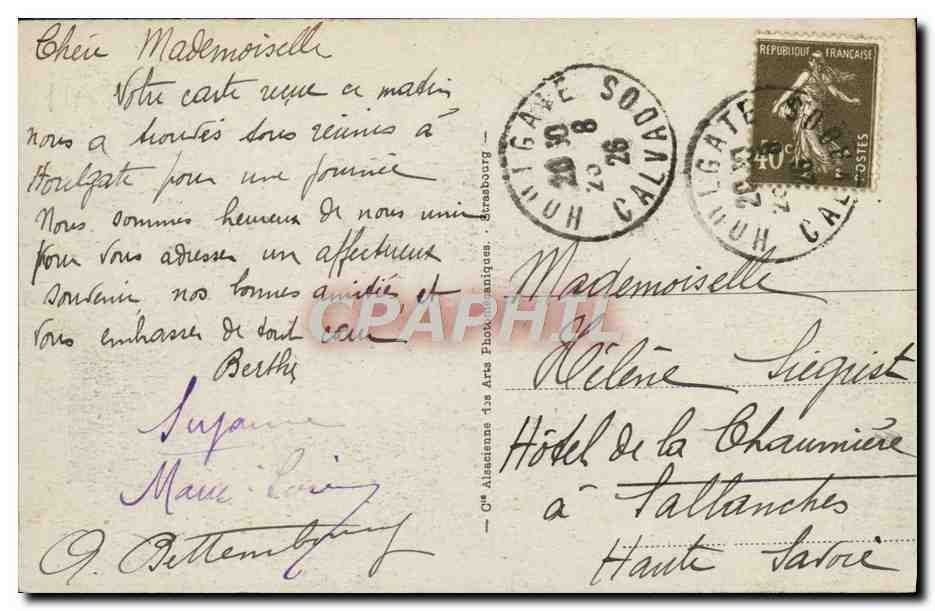 Chère Mademoiselle
Votre carte reçue ce matin
nous a trouvés tous réunis à
Houlgate pour une journée
Nous sommes heureux de nous unir
pour vous adresser un affectueux
souvenir nos bonnes amitiés et
vous embrasser de tout cœur
Berthe
Suzanne
Marie-Louise
A. Bettembourg
Cie Alsacienne des Arts Photomécaniques. - Strasbourg
HOULGATE CALVADOS
20 30
8
26
REPUBLIQUE FRANÇAISE
40c
POSTES
HOULGATE CALVADOS
Mademoiselle
Hélène Siegrist
Hôtel de la Chaumière
à Sallanches
Haute Savoie
CPAPHIL